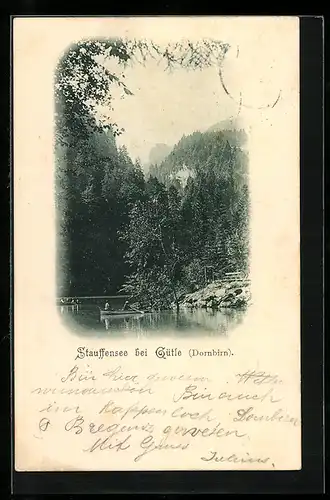 Stauffensee bei Gütle (Dornbirn).
Bin hier gewesen.
Bin auch
im Rappenloch
Bregenz gewesen
Mit Gruss
Julius